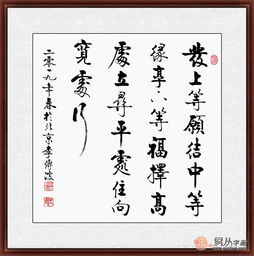 發上等願結中等
緣享下等福擇高
處立尋平處住向
寬處行
二零一九年春於北京李傳波
易从字画